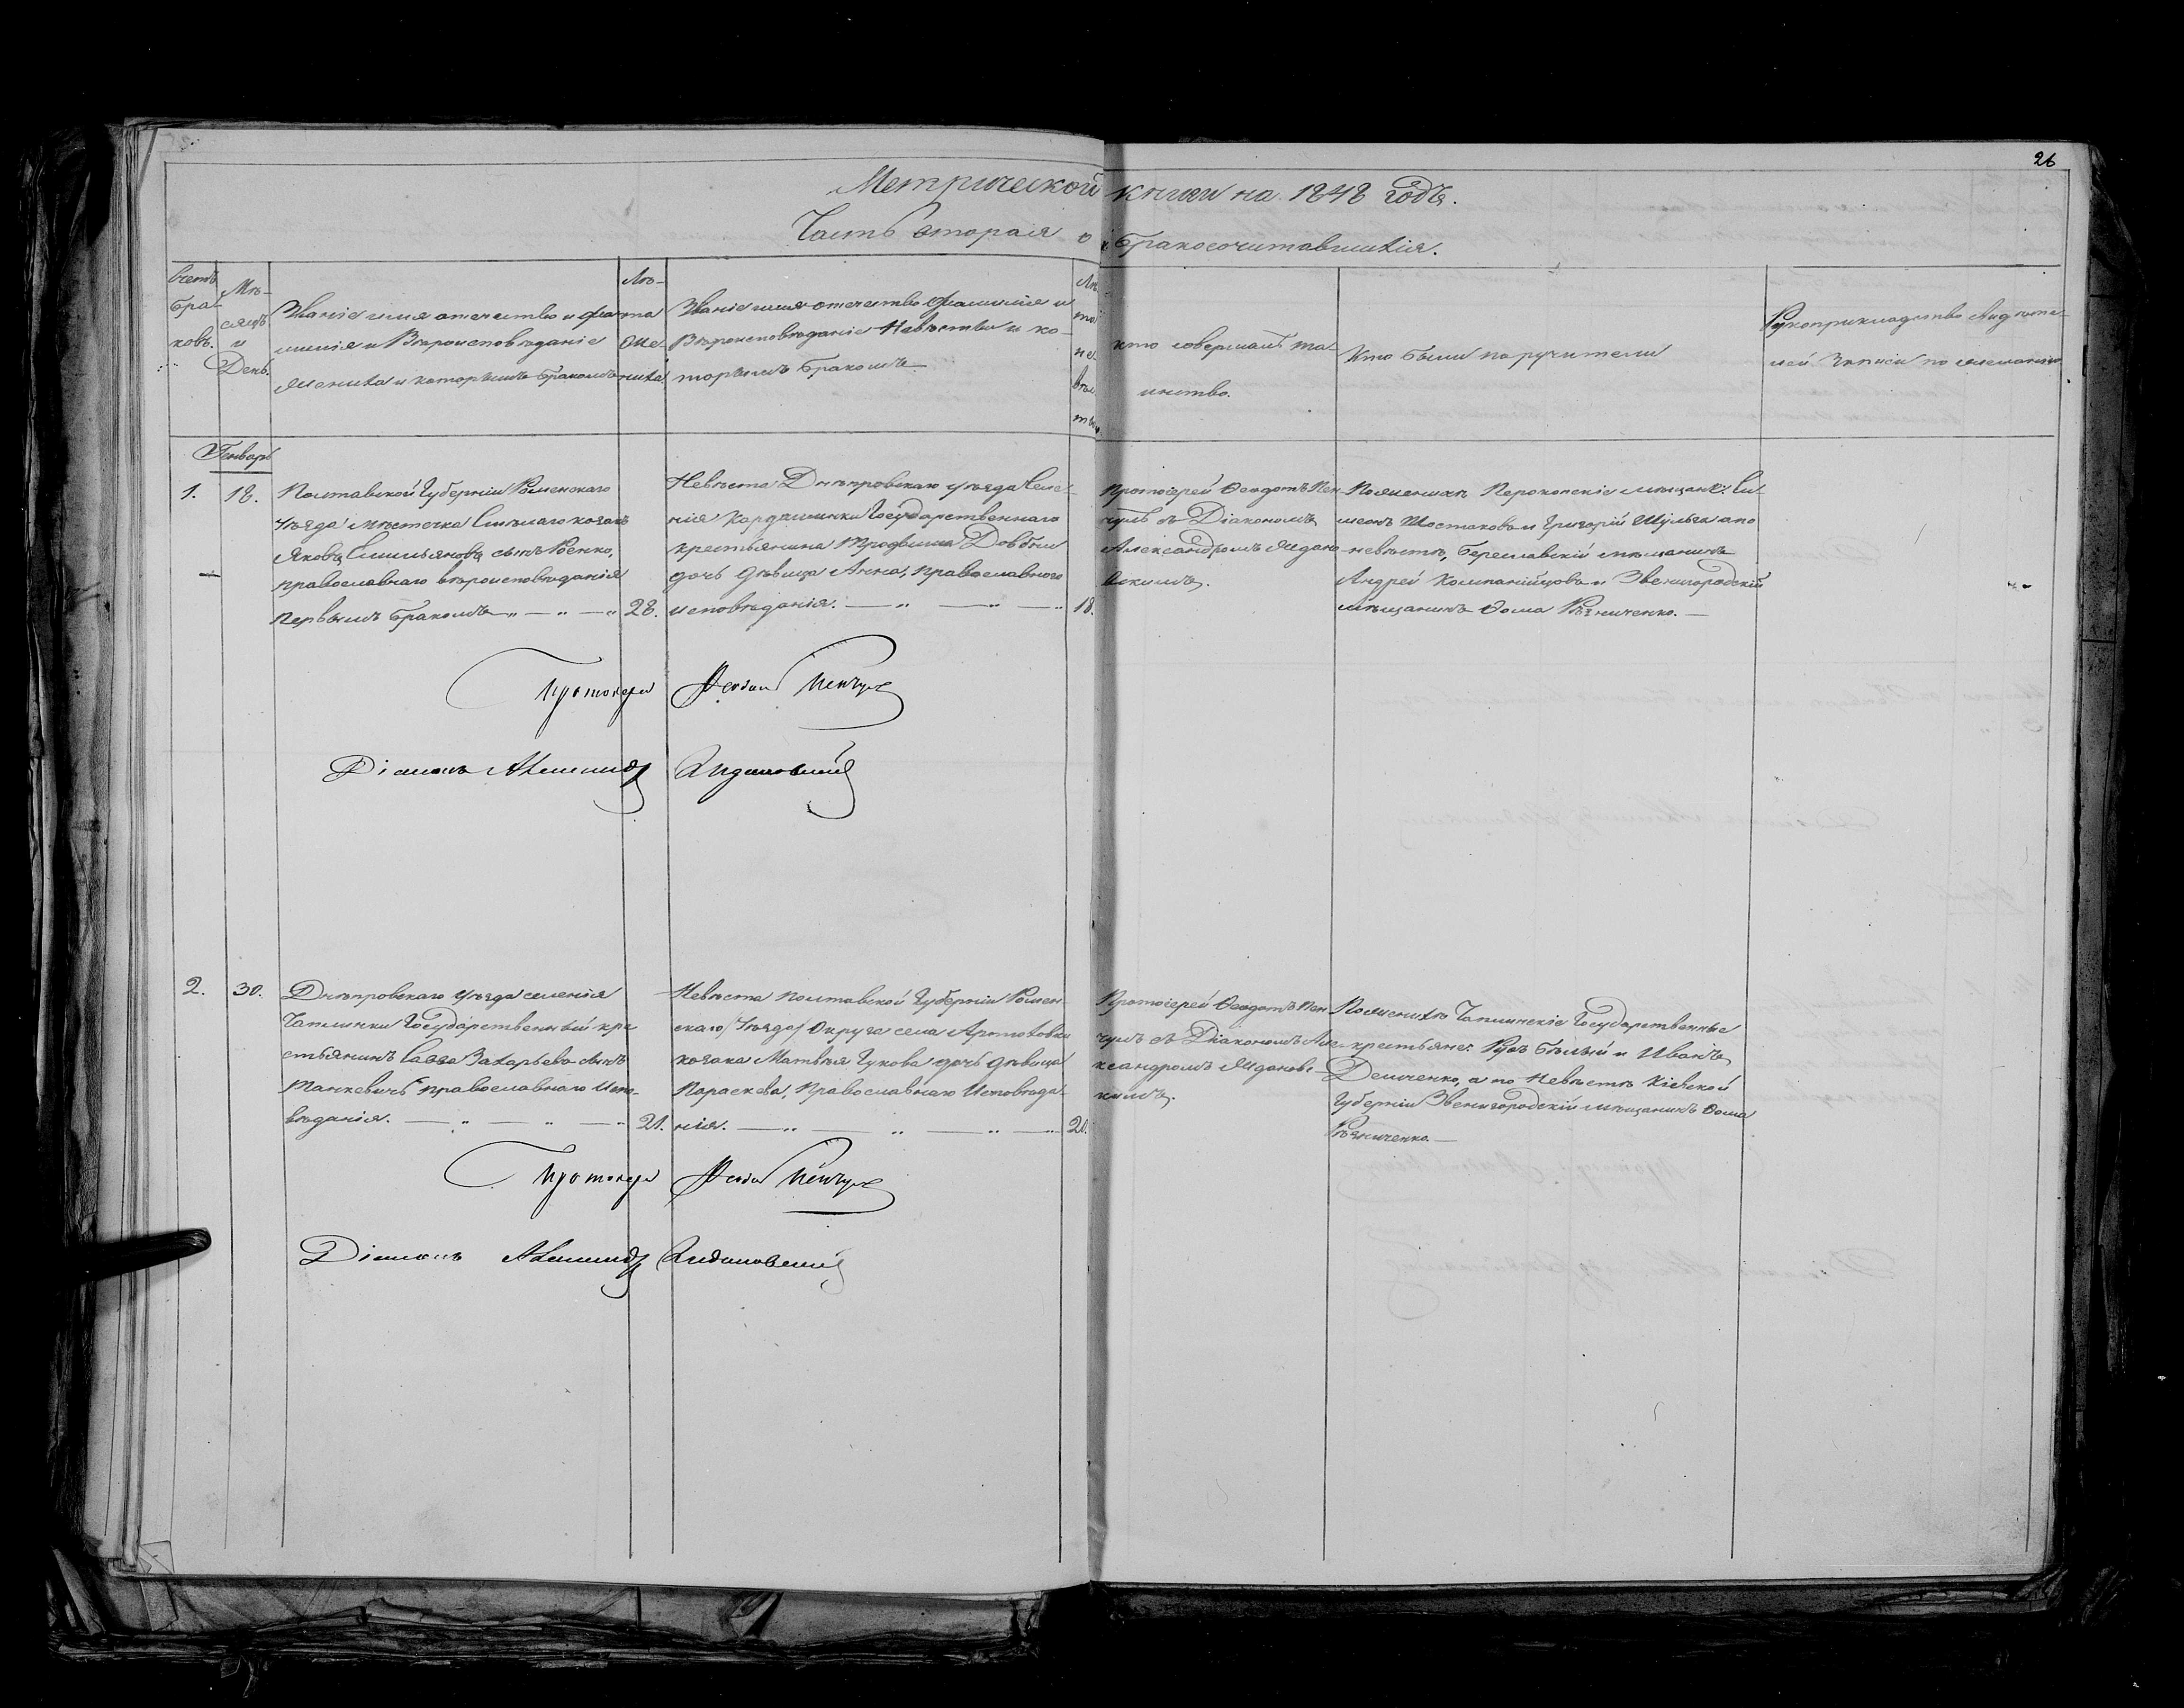 26
Метрической книги на 1848 годъ.
Часть вторая о бракосочитавшихся.
Счетъ
бра-
ковъ.
Мѣ-
сяцъ
и
День.
Званіе имя отечество и фа-
милія и Вѣроисповѣданіе
жениха и которымъ бракомъ
Лѣ-
та
же-
ниха
Званіе имя отечество фамилія и
Вѣроисповѣданіе Невѣсты и ко-
торымъ бракомъ
Лѣ-
та
не-
вѣс
ты
кто совершалъ та-
инство.
Кто были поручители
Рукоприкладство свидѣте-
лей записи по желанію
Генварь
1.
18.
Полтавской Губерніи Роменскаго
уѣзда мѣстечка Смѣлаго козакъ
Яковъ Емильяновъ сынъ Роенко,
православнаго вѣроисповѣданія
первымъ бракомъ
28.
Невѣста Днѣпровскаго уѣзда Селе-
нія Кардашинки Государственнаго
крестьянина Трофима Довбни
дочь дѣвица Анна, православнаго
исповѣданія.
18.
Протоіерей Ѳеодотъ Пен-
чулъ съ Діакономъ
Александромъ Ждано-
вскимъ.
По женихѣ Перекопскіе мѣщане: Си-
меонъ Шостаковъ и Григорій Шульга а по
невѣстѣ, Береславскій мѣщанинъ
Андрей Компанійцовъ и Звенигородскій
мѣщанинъ Ѳома Рѣзниченко.
Протоіерей Ѳеодотъ Пенчулъ
Діаконъ Александръ Ждановскій
2.
30.
Днѣпровскаго уѣзда селенія
Чаплинки Государственный кре
стьянинъ Савва Захарьевъ сынъ
Танкевичъ православнаго испо-
вѣданія.
21.
Невѣста Полтавской Губерніи Ромен-
скаго /Уѣзда/ Округа села
козака Матвѣя Гукова дочь дѣвица
Параскева, Православнаго Исповѣда-
нія.
20.
Протоіерей Ѳеодотъ Пен-
чулъ съ Діакономъ Але-
ксандромъ Ждановс-
кимъ.
По женихѣ Чаплинскіе Государственные
крестьяне: Бѣлый и Иванъ
Демченко, а по Невѣстѣ Кіевской
Губерніи Звенигородскій мѣщанинъ Ѳома
Рѣзниченко.
Протоіерей Ѳеодотъ Пенчулъ
Діаконъ Александръ Ждановскій